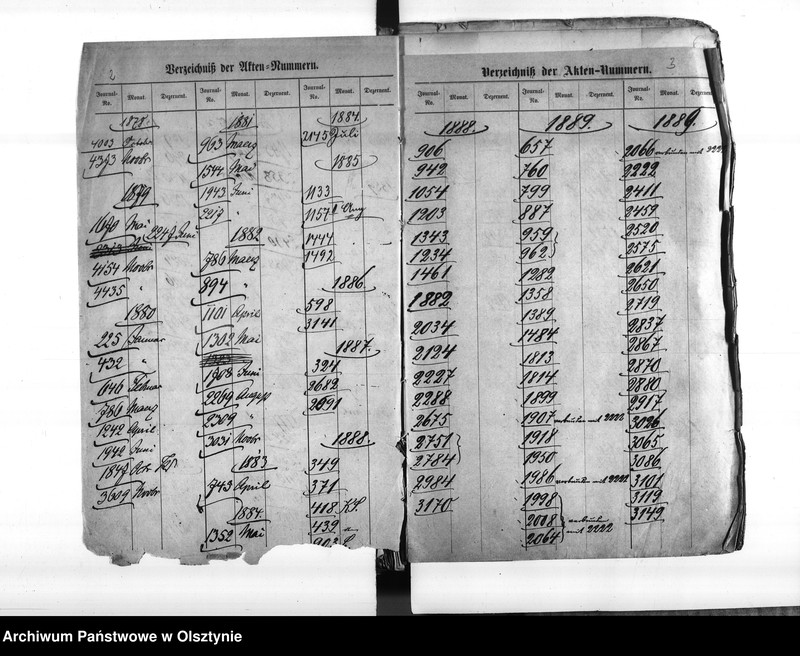 2
Verzeichniß der Akten-Nummern.
Journal-No. Monat. Dezernent. Journal-No. Monat. Dezernent. Journal-No. Monat. Dezernent.
1878.
4393 Novbr
1879
1690 Mai
2247 Juni
4154 Novbr
4435 "
1880
225 Januar
432 "
646 Februar
786 Maerz
1242 April
1942 Juni
1847
3609 Novbr
1881
963 Maerz
1544 Mai
1943 Juni
2017 "
1882
786 Maerz
894 "
1101 April
1302 Mai
1308 Juni
2269 August
2309 "
3031 Novbr
1883
743 April
1884.
1352 Mai
1884.
2845 Juli
1885
1133
1157
1444
1492
1886.
598
3141
1887.
324
2682
2691
1888.
349
371
418
439
903
Verzeichniß der Akten-Nummern.
3
Journal-No. Monat. Dezernent. Journal-No. Monat. Dezernent. Journal-No. Monat. Dezernent.
1888.
906
942
1054
1203
1343
1234
1461
1882
2034
2124
2227
2288
2675
2751
2784
2984
3170
1889.
657
760
799
887
959
962
1282
1358
1389
1484
1813
1814
1899
1907 verbunden mit 2222
1918
1950
1986 verbunden mit 2222
1998
2008 verbunden
2064 mit 2222
1889.
2066 verbunden mit 2222
2222
2411
2459
2520
2575
2621
2650
2719
2837
2867
2870
2880
2917
3026
3065
3086
3101
3119
3149
Archiwum Państwowe w Olsztynie